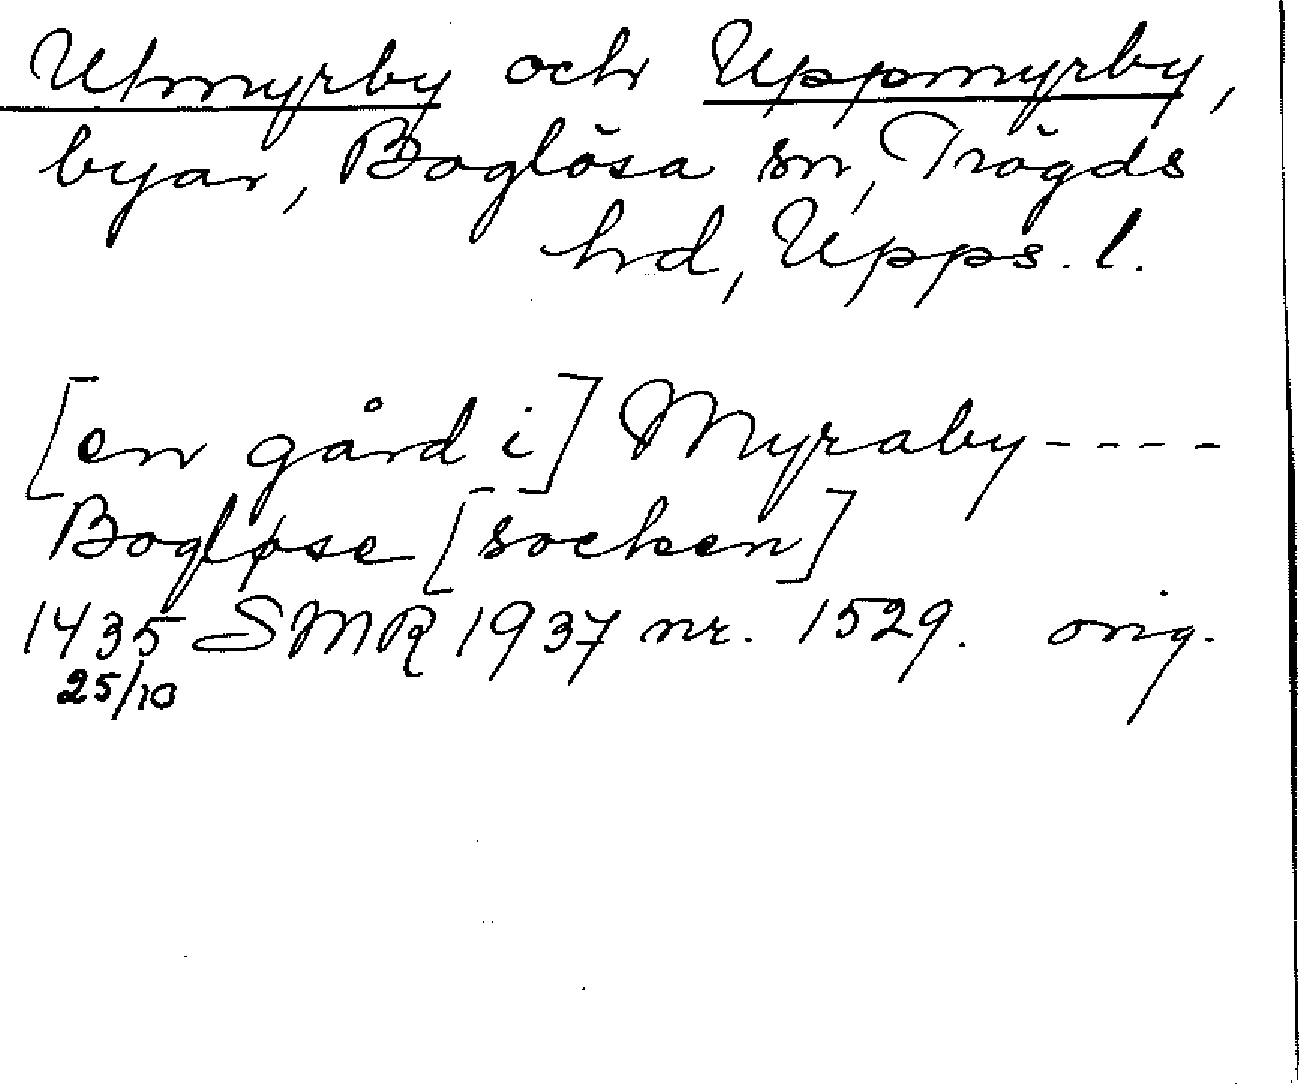 Utmyrby och Uppmyrby,
byar, Boglösa sn, Trögds
hd, Upps. l.
[en gård i] Myraby ----
Bogløse [socken]
1435 SMR 1937 nr. 1529. orig.
25/10